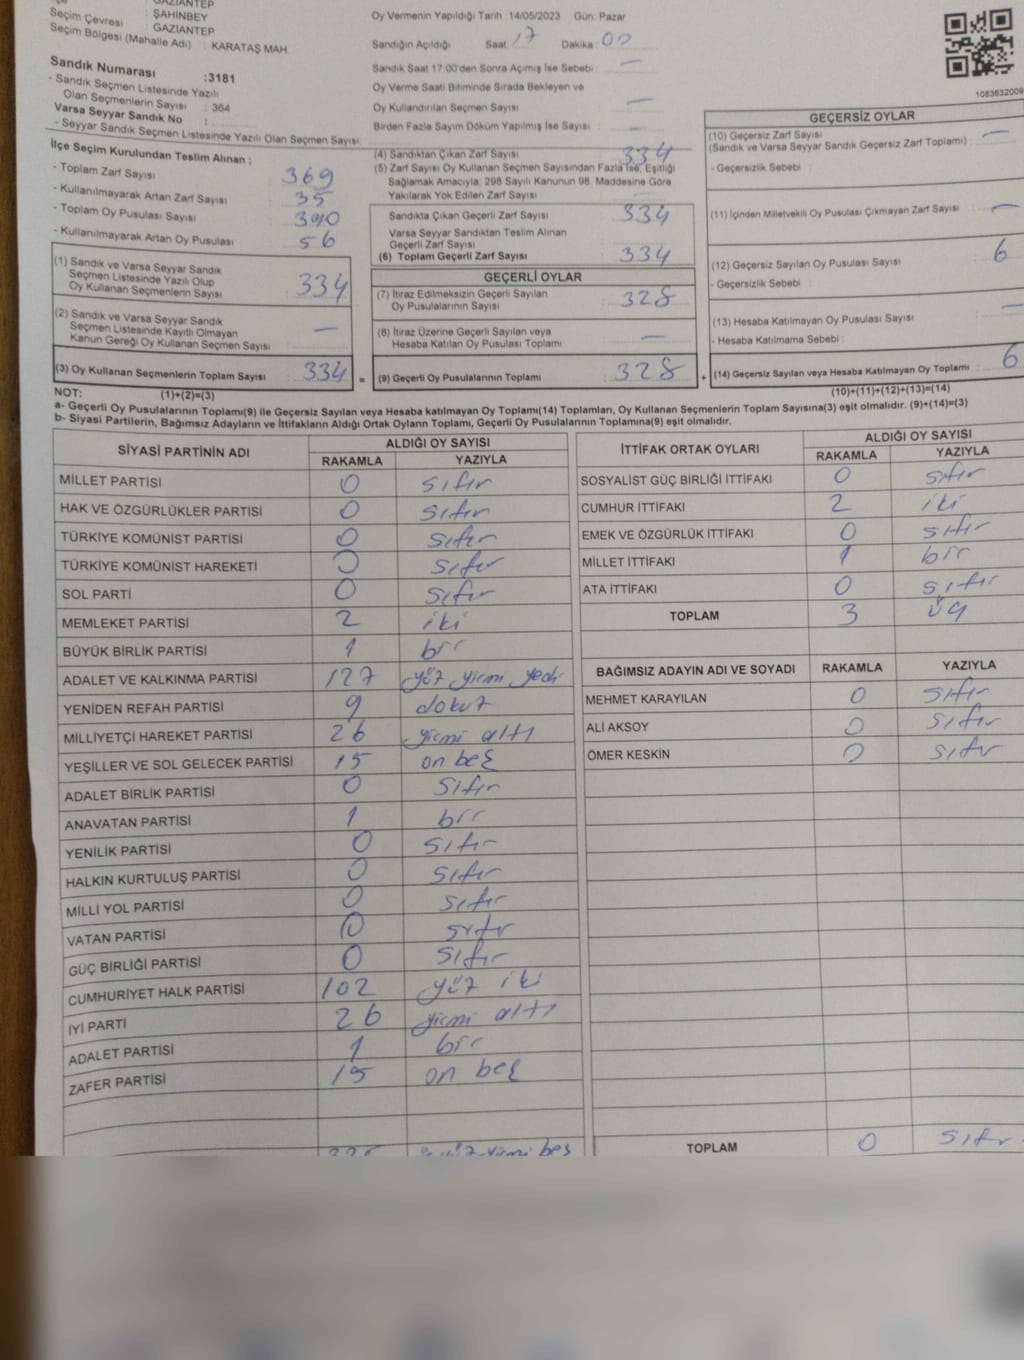 GAZİANTEP
Seçim Çevresi : ŞAHİNBEY
GAZİANTEP
Seçim Bölgesi (Mahalle Adı) : KARATAŞ MAH
Sandık Numarası :3181
- Sandık Seçmen Listesinde Yazılı
Olan Seçmenlerin Sayısı : 364
Varsa Seyyar Sandık No :
- Seyyar Sandık Seçmen Listesinde Yazılı Olan Seçmen Sayısı:
Oy Vermenin Yapıldığı Tarih :14/05/2023 Gün: Pazar
Sandığın Açıldığı Saat: 17 Dakika : 00
Sandık Saat 17:00'den Sonra Açımış İse Sebebi : —
Oy Verme Saati Bitiminde Sırada Bekleyen ve
Oy Kullandırılan Seçmen Sayısı : —
Birden Fazla Sayım Döküm Yapılmış İse Sayısı : —
İlçe Seçim Kurulundan Teslim Alınan ;
- Toplam Zarf Sayısı : 369
- Kullanılmayarak Artan Zarf Sayısı : 35
- Toplam Oy Pusulası Sayısı : 390
- Kullanılmayarak Artan Oy Pusulası : 56
(1) Sandık ve Varsa Seyyar Sandık
Seçmen Listesinde Yazılı Olup
Oy Kullanan Seçmenlerin Sayısı : 334
(2) Sandık ve Varsa Seyyar Sandık
Seçmen Listesinde Kayıtlı Olmayan
Kanun Gereği Oy Kullanan Seçmen Sayısı : —
(3) Oy Kullanan Seçmenlerin Toplam Sayısı : 334 =
(4) Sandıktan Çıkan Zarf Sayısı : 334
(5) Zarf Sayısı Oy Kullanan Seçmen Sayısından Fazla İse, Eşitliği
Sağlamak Amacıyla; 298 Sayılı Kanunun 98. Maddesine Göre
Yakılarak Yok Edilen Zarf Sayısı : —
Sandıkta Çıkan Geçerli Zarf Sayısı : 334
Varsa Seyyar Sandıktan Teslim Alınan
Geçerli Zarf Sayısı :
(6) Toplam Geçerli Zarf Sayısı : 334
GEÇERLİ OYLAR
(7) İtiraz Edilmeksizin Geçerli Sayılan
Oy Pusulalarının Sayısı : 328
(8) İtiraz Üzerine Geçerli Sayılan veya
Hesaba Katılan Oy Pusulası Toplamı : —
(9) Geçerli Oy Pusulalarının Toplamı : 328 +
GEÇERSİZ OYLAR
(10) Geçersiz Zarf Sayısı
(Sandık ve Varsa Seyyar Sandık Geçersiz Zarf Toplamı) : —
- Geçersizlik Sebebi :
(11) İçinden Milletvekili Oy Pusulası Çıkmayan Zarf Sayısı : —
(12) Geçersiz Sayılan Oy Pusulası Sayısı : 6
- Geçersizlik Sebebi :
(13) Hesaba Katılmayan Oy Pusulası Sayısı : —
- Hesaba Katılmama Sebebi :
(14) Geçersiz Sayılan veya Hesaba Katılmayan Oy Toplamı : 6
NOT: (1)+(2)=(3) (10)+(11)+(12)+(13)=(14)
a- Geçerli Oy Pusulalarının Toplamı(9) ile Geçersiz Sayılan veya Hesaba katılmayan Oy Toplamı(14) Toplamları, Oy Kullanan Seçmenlerin Toplam Sayısına(3) eşit olmalıdır. (9)+(14)=(3)
b- Siyasi Partilerin, Bağımsız Adayların ve İttifakların Aldığı Ortak Oyların Toplamı, Geçerli Oy Pusulalarının Toplamına(9) eşit olmalıdır.
SİYASİ PARTİNİN ADI ALDIĞI OY SAYISI
RAKAMLA YAZIYLA
MİLLET PARTİSİ 0 sıfır
HAK VE ÖZGÜRLÜKLER PARTİSİ 0 sıfır
TÜRKİYE KOMÜNİST PARTİSİ 0 sıfır
TÜRKİYE KOMÜNİST HAREKETİ 0 sıfır
SOL PARTİ 0 sıfır
MEMLEKET PARTİSİ 2 iki
BÜYÜK BİRLİK PARTİSİ 1 bir
ADALET VE KALKINMA PARTİSİ 127 yüz yirmi yedi
YENİDEN REFAH PARTİSİ 9 dokuz
MİLLİYETÇİ HAREKET PARTİSİ 26 yirmi altı
YEŞİLLER VE SOL GELECEK PARTİSİ 15 on beş
ADALET BİRLİK PARTİSİ 0 sıfır
ANAVATAN PARTİSİ 1 bir
YENİLİK PARTİSİ 0 sıfır
HALKIN KURTULUŞ PARTİSİ 0 sıfır
MİLLİ YOL PARTİSİ 0 sıfır
VATAN PARTİSİ 0 sıfır
GÜÇ BİRLİĞİ PARTİSİ 0 sıfır
CUMHURİYET HALK PARTİSİ 102 yüz iki
İYİ PARTİ 26 yirmi altı
ADALET PARTİSİ 1 bir
ZAFER PARTİSİ 15 on beş
beş
İTTİFAK ORTAK OYLARI ALDIĞI OY SAYISI
RAKAMLA YAZIYLA
SOSYALİST GÜÇ BİRLİĞİ İTTİFAKI 0 sıfır
CUMHUR İTTİFAKI 2 iki
EMEK VE ÖZGÜRLÜK İTTİFAKI 0 sıfır
MİLLET İTTİFAKI 1 bir
ATA İTTİFAKI 0 sıfır
TOPLAM 3 üç
BAĞIMSIZ ADAYIN ADI VE SOYADI RAKAMLA YAZIYLA
MEHMET KARAYILAN 0 sıfır
ALİ AKSOY 0 sıfır
ÖMER KESKİN 0 sıfır
TOPLAM 0 sıfır